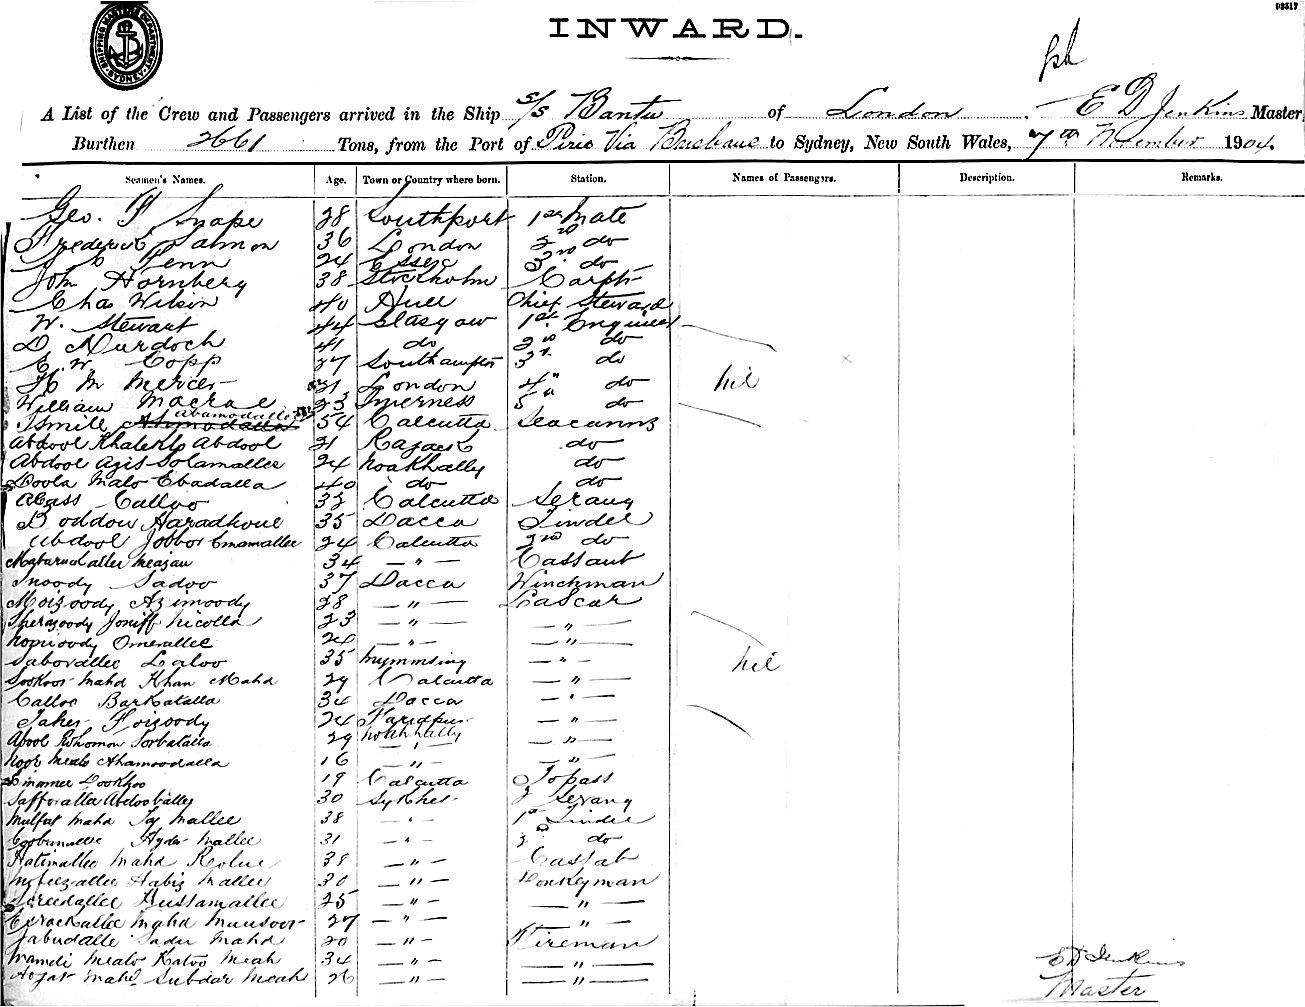 93517
INWARD.
SHIPPING MASTERS DEPARTMENT SYDNEY
A List of the Crew and Passengers arrived in the Ship S/S Bantu of London E D Jenkins Master
Burthen 2661 Tons, from the Port of Pirie Via Brisbane to Sydney, New South Wales, 7th November 1904.
Seamen's Names. Age. Town or Country where born. Station. Names of Passengers. Description. Remarks.
Geo. F Snape 28 Southport 1st Mate
Frederick Salmon 36 London 2nd do
Fenn 24 Essex 3rd do
John Hornberg 38 Stockholm Carptr
Chas Wilson 40 Hull Chief Steward
W. Stewart 44 Glasgow 1st Engineer
D Murdoch 41 do 2nd do
E W Copp 27 Southampton 3rd do
H M Mercer 21 London 4th do nil
William Macrae 23 Inverness 5th do
Ismile Abamodalla 54 Calcutta Seacunny
Abdool Khalek Abdool 21 do
Abdool Azis Solamallee 24 Noakhally do
Doola Malo Ebadalla 40 do do
Abass Calloo 32 Calcutta Serang
Boddou Haradhone 35 Dacca Tindel
Abdool Jobbor Emamallee 24 Calcutta 2nd do
34 — " — Cassaut
Sadoo 37 Dacca Winchman
Moizoody Azimoody 28 — " — Lascar
Joniff Nicolla 23 — " — — " —
Omerallee 24 — " — — " —
Saborallee Laloo 35 Mymmsing — " —
Sookoor Mahd Khan Mahd 29 Calcutta — " — nil
Calloo Barkatalla 34 Dacca — " —
Taher Foizoody 24 Faridpur — " —
Abool Rohomon Sorbatalla 29 Noakhally — " —
Noor Mealo Ahamoodalla 16 — " — — " —
Dookhoo 19 Calcutta Topass
Safforallee 30 Sylhet 2 Serang
Mahd Mallee 38 — " — 1st Tindel
Hyder Mallee 31 — " — 2nd do
Hatimallee Mahd 38 — " — Cassab
Habiz Mallee 30 — " — Donkeyman
Hussamallee 25 — " — — " —
Mahd Munsoor 27 — " — — " —
Sadu Mahd 20 — " — Fireman
Mamdi Mealo Kaloo Meah 34 — " — — " —
Mahd Subdar Meah 26 — " — — " —
E D Jenkins
Master